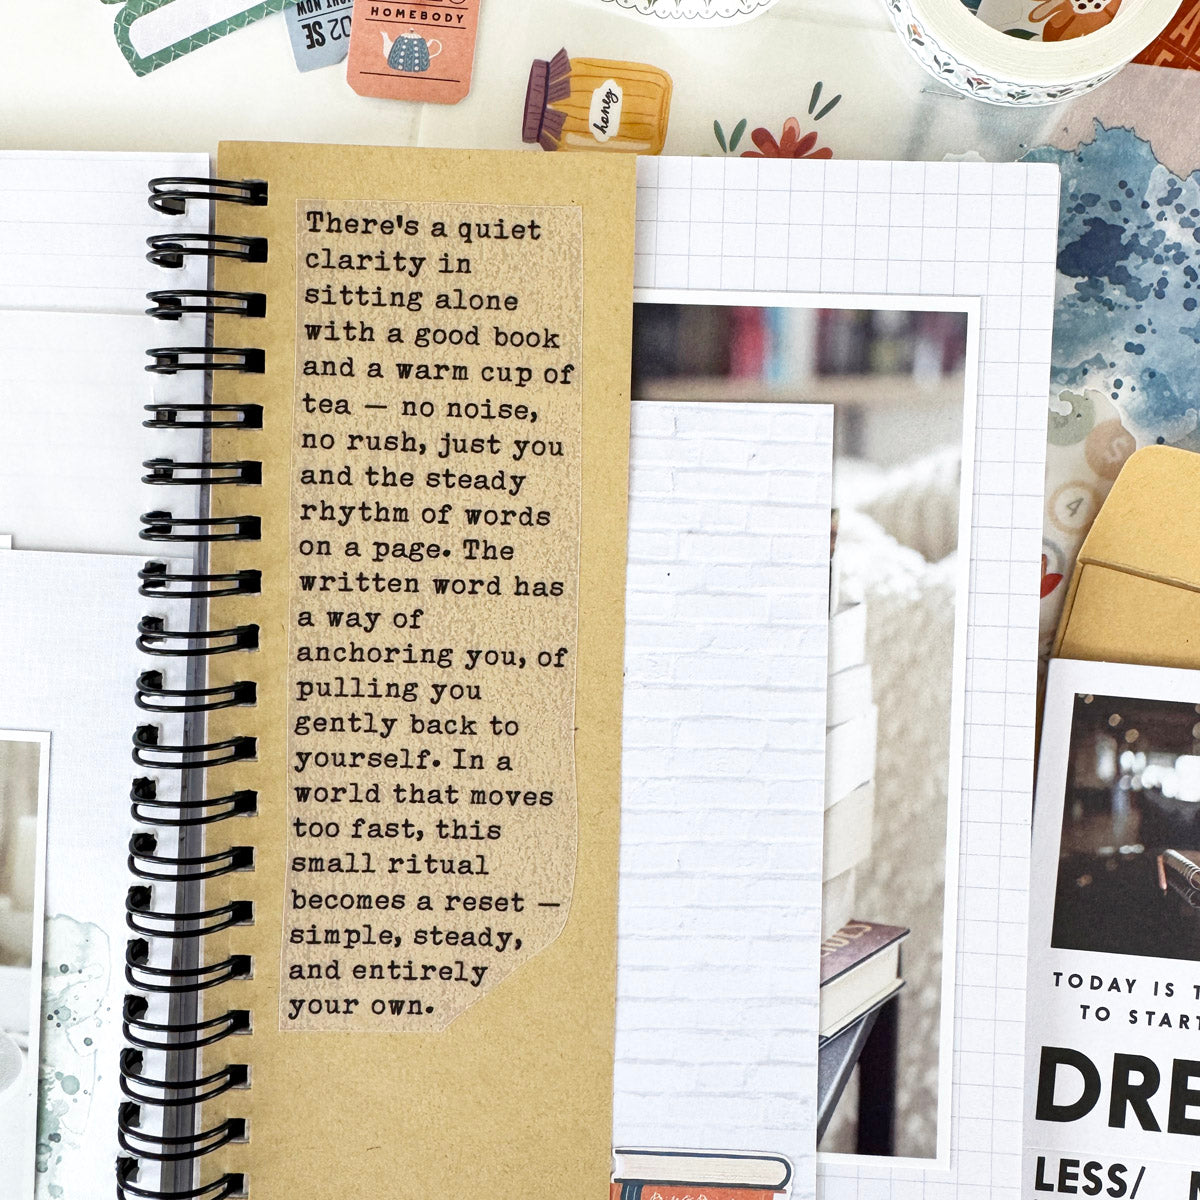 HOMEBODY
RIGHT NOW
02
SE
honey
There's a quiet
clarity in
sitting alone
with a good book
and a warm cup of
tea — no noise,
no rush, just you
and the steady
rhythm of words
on a page. The
written word has
a way of
anchoring you, of
pulling you
gently back to
yourself. In a
world that moves
too fast, this
small ritual
becomes a reset —
simple, steady,
and entirely
your own.
4
TODAY IS
TO START
DRE
LESS/